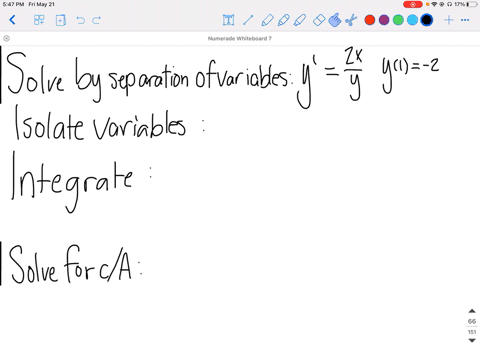 5:47 PM Fri May 21
17%
Numerade Whiteboard 7
Solve by separation of variables: y' = 2x/y y(1)=-2
Isolate variables :
Integrate :
Solve for c/A :
66
151